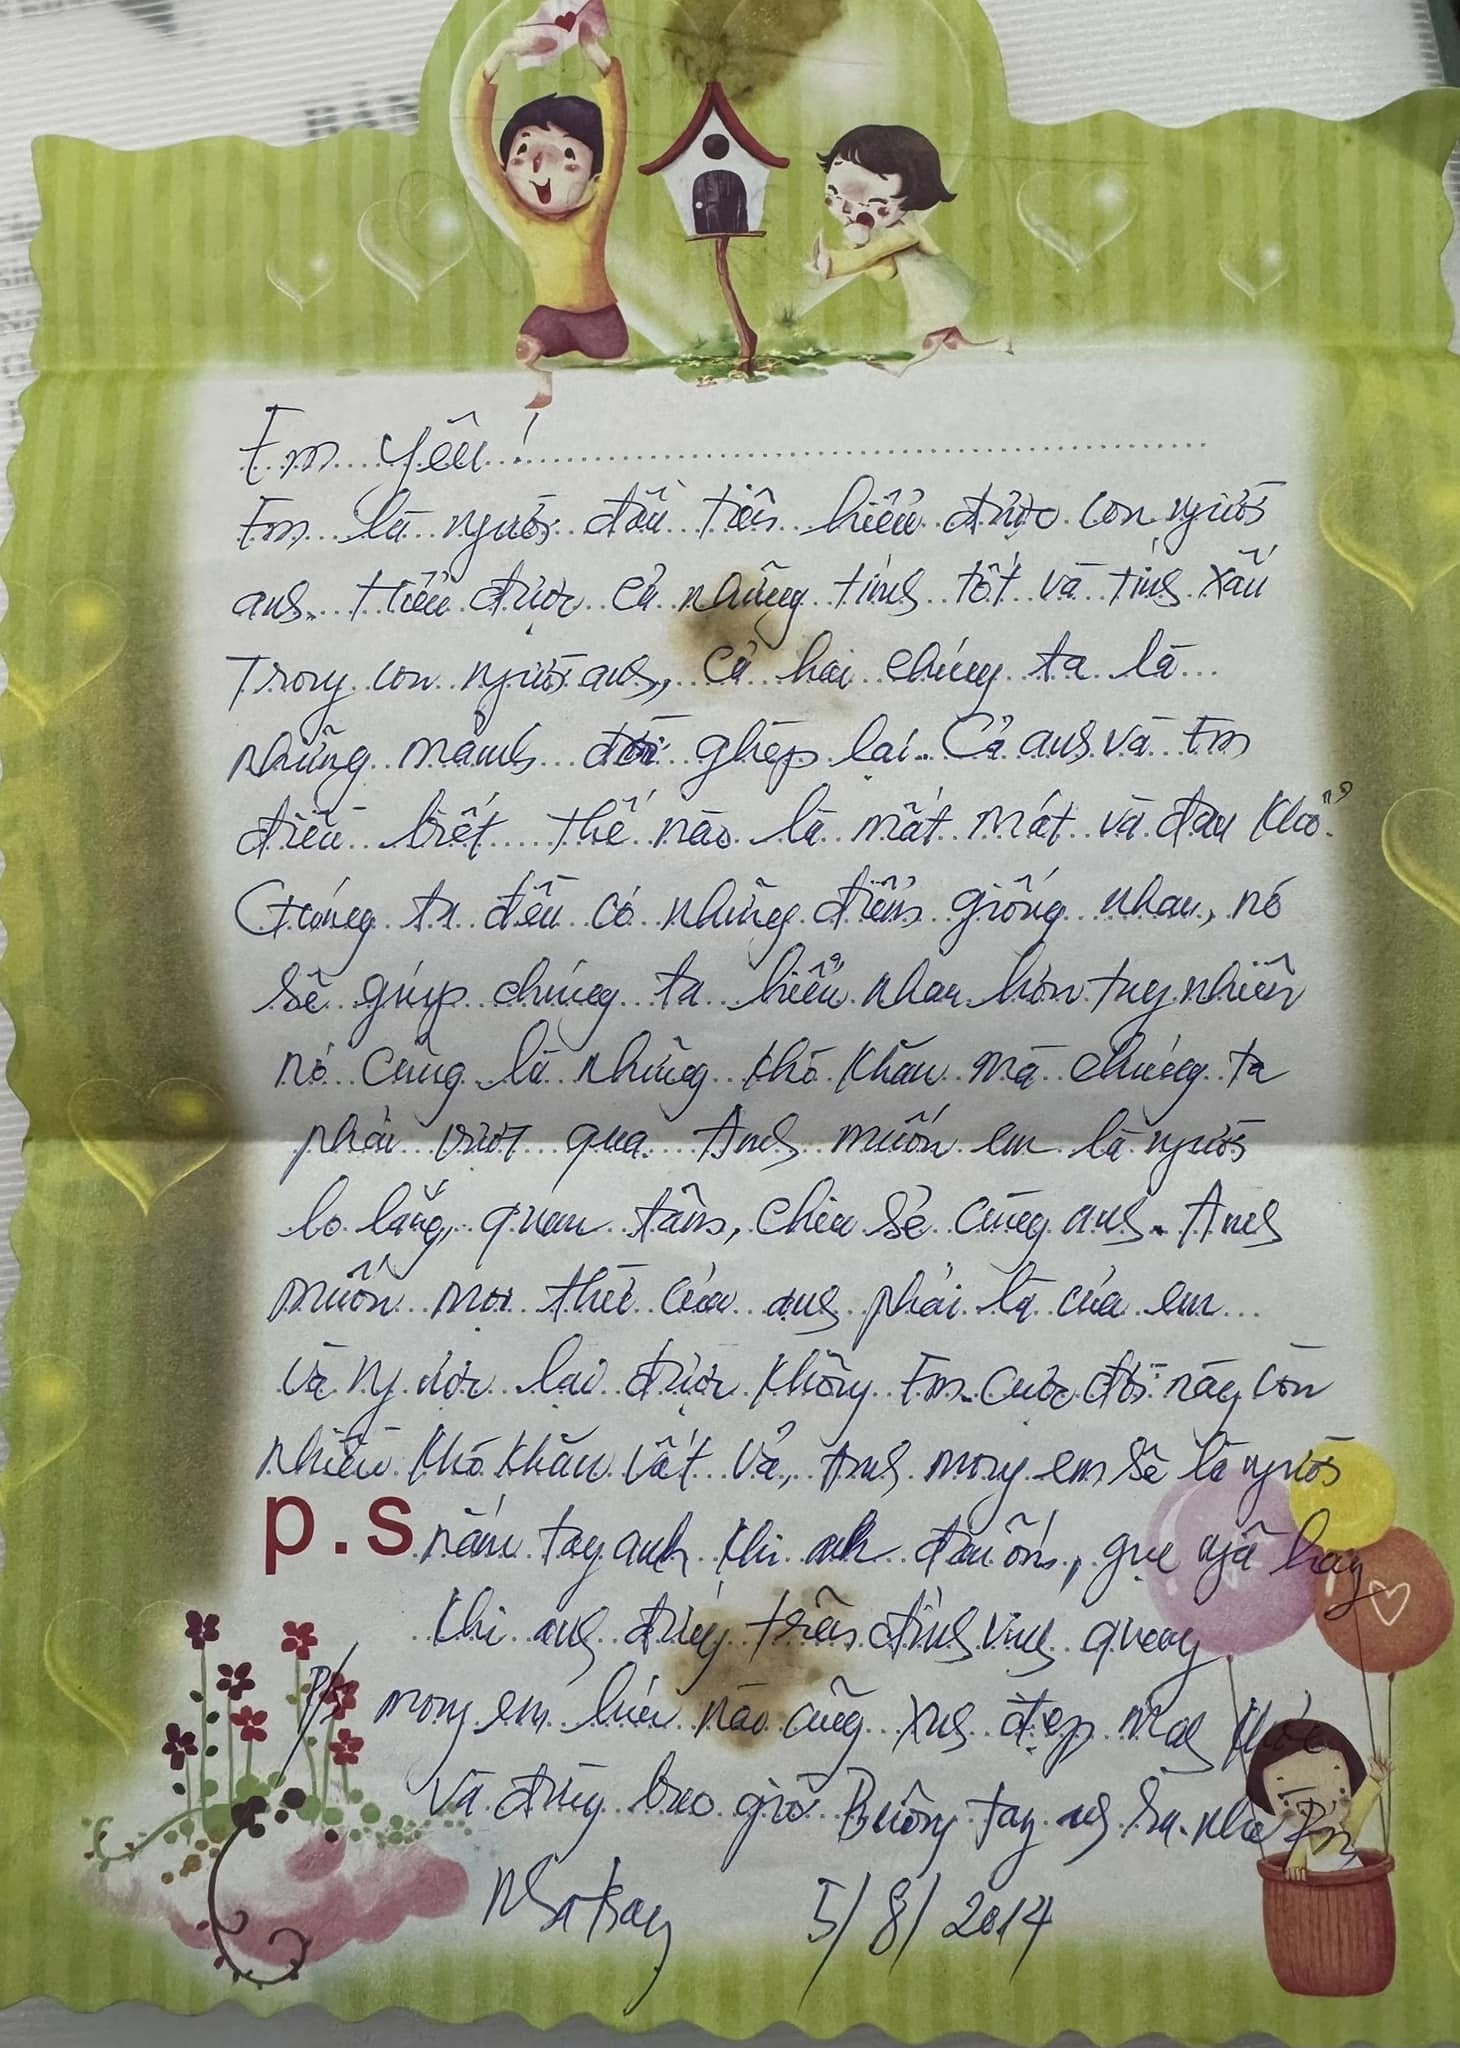 BẢN
Em yêu!
Em là người đầu tiên hiểu được con người
anh. Hiểu được cả những tính tốt và tính xấu
trong con người anh, cả hai chúng ta là
những mảnh đời ghép lại. Cả anh và Em
điều biết thế nào là mất mát và đau khổ.
Chúng ta đều có những điểm giống nhau, nó
sẽ giúp chúng ta hiểu nhau hơn tuy nhiên
nó cũng là những khó khăn mà chúng ta
phải vượt qua. Anh muốn em là người
lo lắng, quan tâm, chia sẻ cùng anh. Anh
muốn mọi thứ của anh phải là của em
và ngược lại được không Em. Cuộc đời này còn
nhiều khó khăn vất vả, Anh mong em sẽ là người
p.s nắm tay anh khi anh đau ốm, gục ngã hay
khi anh đứng trên đỉnh vinh quang
P/s mong em lúc nào cũng xinh đẹp mạnh khỏe
Và đừng bao giờ Buông tay anh ra nha Em
Nha trang 5/8/2014